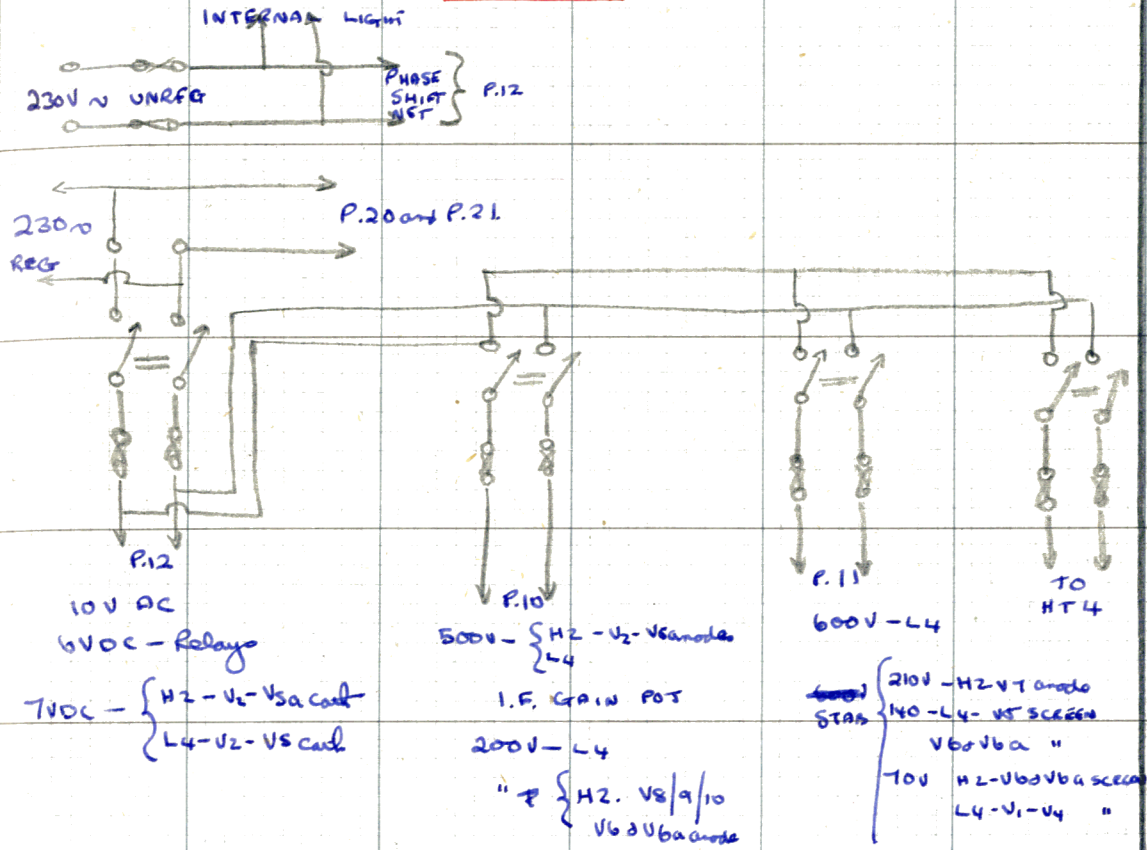 INTERNAL LIGHT
230V ~ UNREG
PHASE
SHIFT
NET
P.12
230 ~
REG
P.20 and P.21.
P.12
10V AC
6VDC - Relays
7VDC - { H2 - V2 - V5a cath
L4 - V2 - V5 cath
P.10
500V - { H2 - V2 - V5 anodes
L4
I.F. GAIN POT
200V - L4
" { H2. V8/9/10
V6 & V6a anode
P.11
600V - L4
STAB
210V - H2 V7 anode
140 - L4 - V5 SCREEN
V6 & V6a "
70V H2 - V6 & V6a screen
L4 - V1 - V4 "
TO
HT4